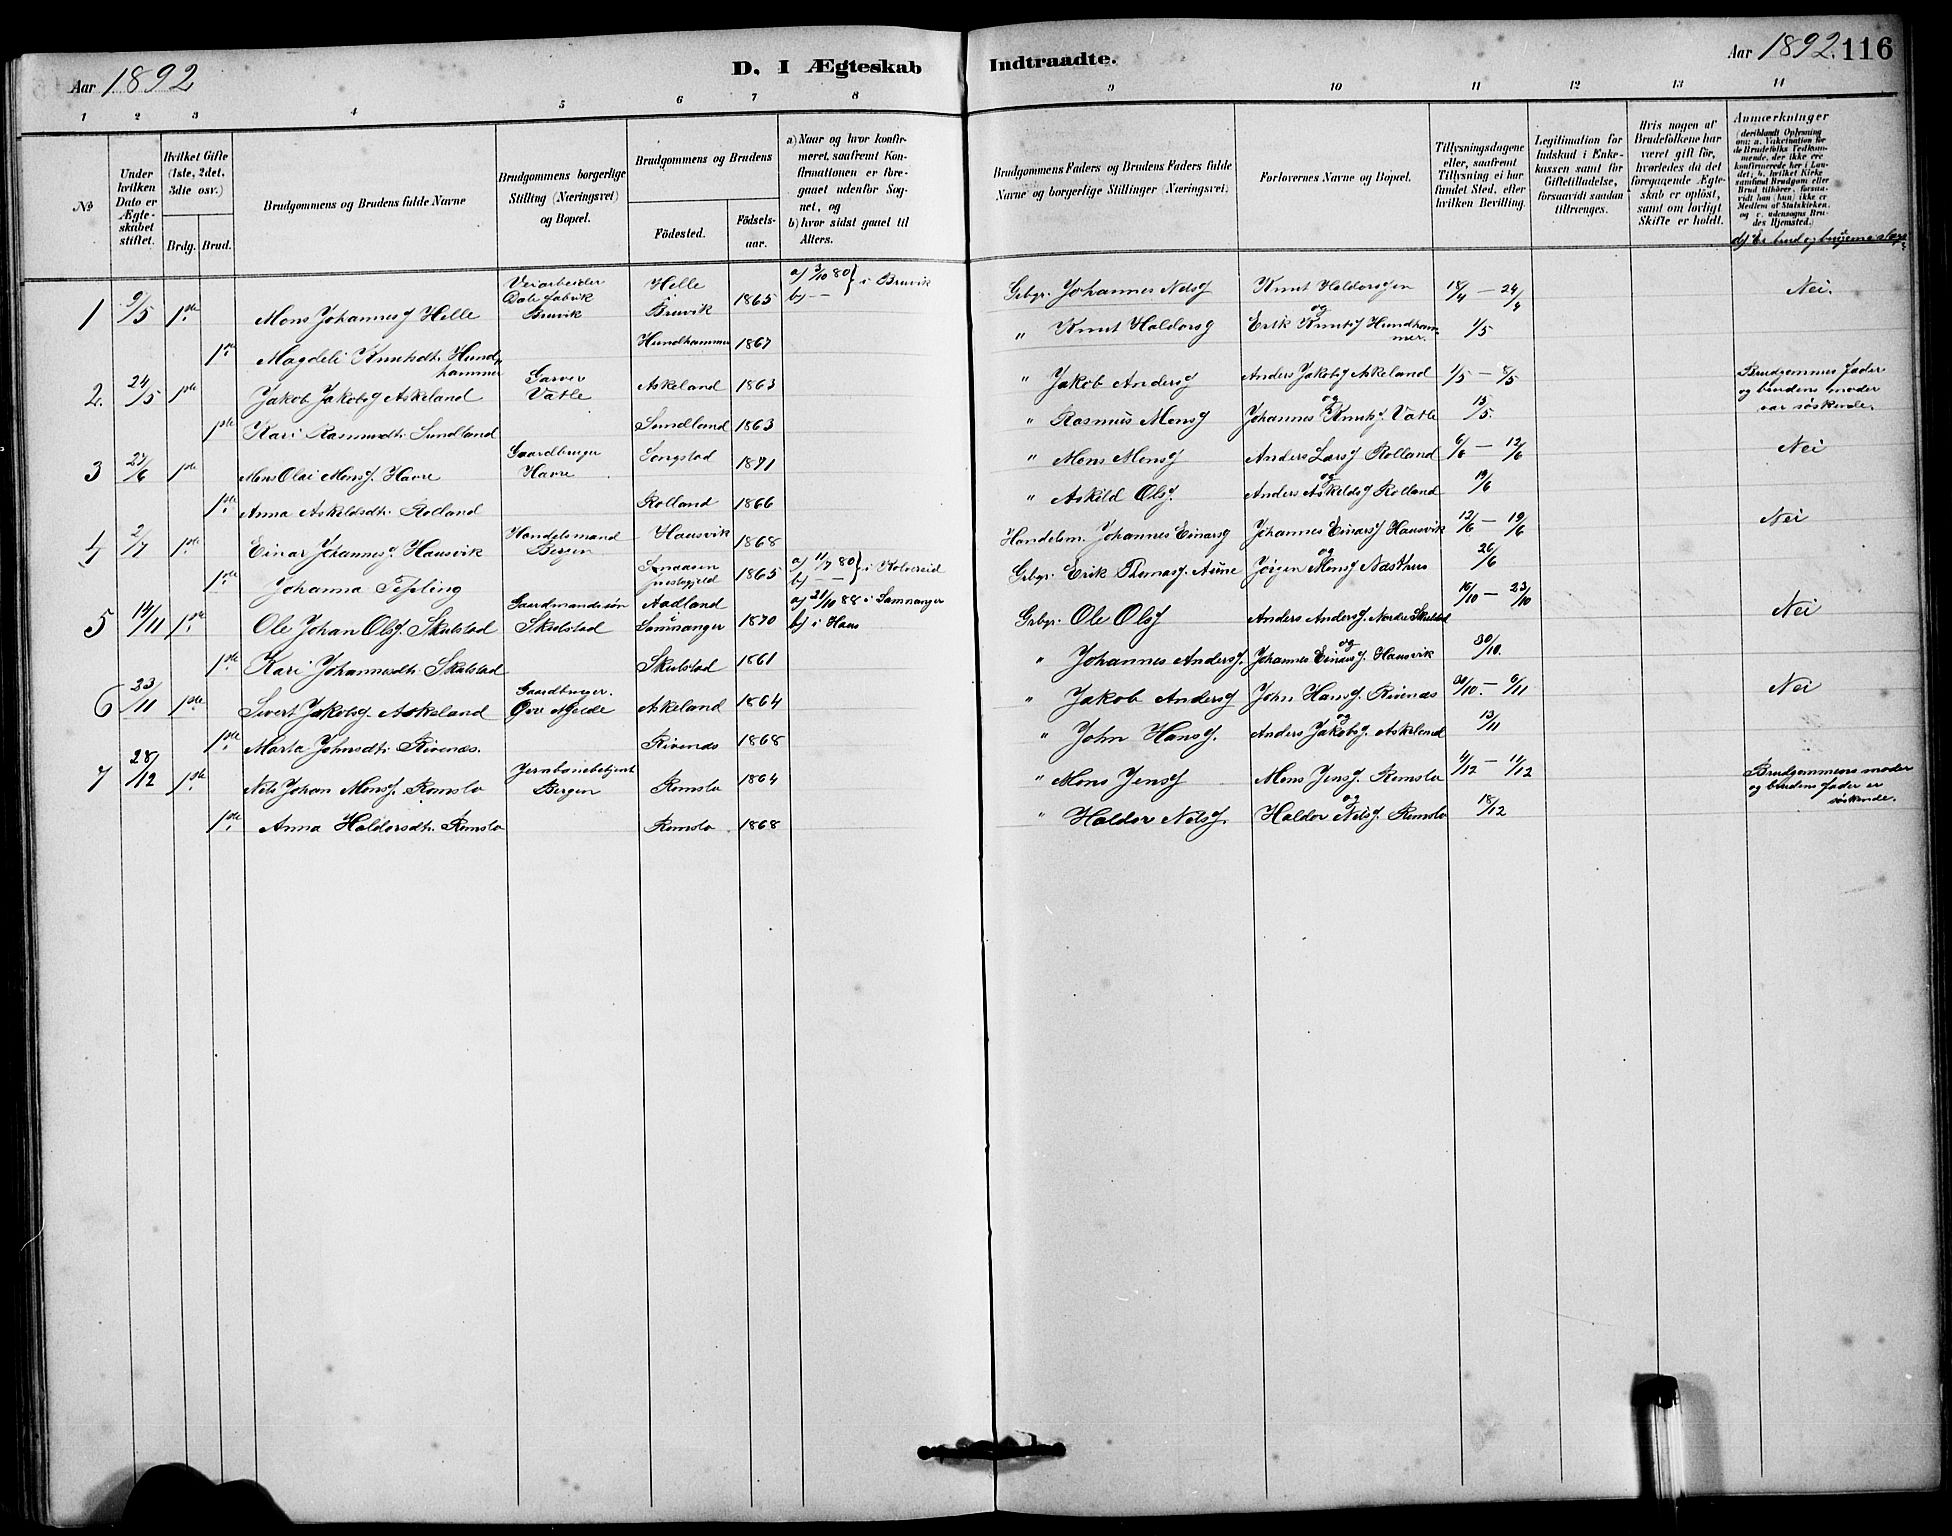 Aar 1892
D. I Ægteskab Indtraadte.
Aar 1892. 116
1 2 3 4 5 6 7 8 9 10 11 12 13 14
No
Under hvilken Dato er Ægteskabet stiftet.
Hvilket Gifte (1ste, 2det, 3die osv.)
Brdg. Brud.
Brudgommens og Brudens fulde Navne
Brudgommens borgerlige Stilling (Næringsvei) og Bopæl.
Brudgommens og Brudens
Födested.
Födsels-aar.
a) Naar og hvor konfirmeret, saafremt Konfirmationen er foregaaet udenfor Sognet, og
b) hvor sidst gaaet til Alters.
Brudgommens Faders og Brudens Faders fulde Navne og borgerlige Stillinger (Næringsvei).
Forlovernes Navne og Bopæl.
Tillysningsdagene eller, saafremt Tillysning ei har fundet Sted, efter hvilken Bevilling.
Legitimation for Indskud i Enkekassen samt for Giftetilladelse, forsaavidt saadan tiltrænges.
Hvis nogen af Brudefolkene har været gift för, hvorledes da det foregaaende Ægteskab er oplöst, samt om lovligt Skifte er holdt.
Anmærkninger
(deriblandt Oplysning om: a. Vakcination for de Brudefolks Vedkommende, der ikke ere konfirmerede her i Landet; b. hvilket Kirkesamfund Brudgom eller Brud tilhörer, forsaavidt han (hun) ikke er Medlem af Statskirken, og c. udensogns Brudes Hjemsted.
d) Er brud og brudgom i slægt
1 9/5 1ste Mons Johanness. Helle Veiarbeider Dale fabrik Bruvik Helle i Bruvik 1865 a) 3/10 80 b) — } i Bruvik Grbgr. Johannes Nelss. Knut Haldorssen og 18/4 — 24/4 Nei.
1ste Magdeli Knutsdtr. Hundhammer Hundhammer 1867 " Knut Haldorss. Erik Knuts. Hundhammer. 1/5
2. 24/5 1ste Jakob Jakobs. Askeland Garver Vatle Askeland 1863 " Jakob Anderss. Anders Jakobs. Askeland og 1/5 — 8/5 Brudgommens fader og brudens moder var söskende.
1ste Kari Rasmusdtr. Sundland Sundland 1863 " Rasmus Monss. Johannes Knuts. Vatle 15/5.
3 27/6 1ste Mons Olai Monss. Havre Gaardbruger Havre Songstad 1871 " Mons Monss. Anders Larss. Rolland og 6/6 — 12/6 Nei
1ste Anna Askildsdtr. Rolland Rolland 1866 " Askild Ols. Anders Askilds. Rolland 19/6
4 2/7 1ste Einar Johanness. Hausvik Handelsmand Bergen Hausvik 1868 Handelsm. Johannes Einarss. Johannes Einarss. Hausvik og 12/6 — 19/6 Nei
1ste Johanna Tefling Snaasen prestegjeld 1865 a) 11/7 80 b) — — } i Kolvereid Grbgr. Erik Thomass. Aune Jörgen Monss. Næsthus 26/6
5 14/11 1ste Ole Johan Olss. Skulstad Gaardmandssön Skulstad Aadland i Samnanger 1870 a) 21/10 88 i Samnanger b) i Haus Grbgr. Ole Olss. Anders Anderss. Nordre Skulstad og 16/10 — 23/10 Nei
1ste Kari Johannesdtr. Skulstad Skulstad 1861 " Johannes Anderss. Johannes Einarss. Hausvik 30/10.
6 23/11 1ste Sivert Jakobs. Askeland Gaardbruger. Övr Mjelde Askeland 1864 " Jakob Anderss. John Hanss. Rivenæs og 30/10. — 6/11 Nei
1ste Marta Johnsdtr. Rivenæs. Rivenæs 1868 " John Hanss. Anders Jakobs. Askeland 13/11
7 28/12 1ste Nels Johan Monss. Romslo Jernbanebetjent Bergen Romslo 1864 " Mons Jenss. Mons Jenss. Romslo og 4/12 — 11/12 Brudgommens moder og brudens fader er söskende.
1ste Anna Haldorsdtr. Romslo Romslo 1868 " Haldor Nelss. Haldor Nelss. Romslo 18/12